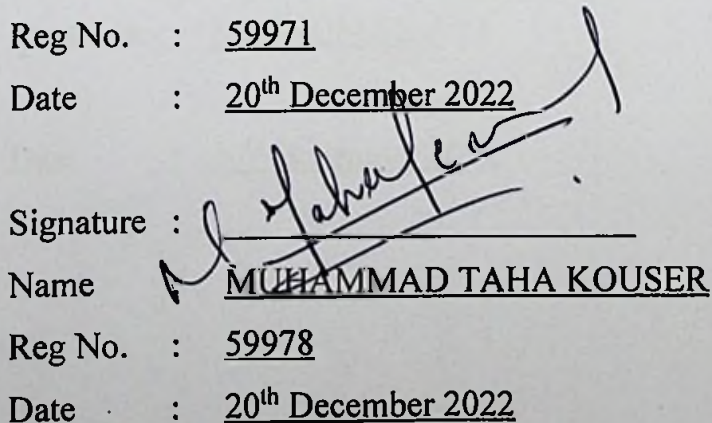 Reg No. : 59971
Date : 20th December 2022
Signature :
Name MUHAMMAD TAHA KOUSER
Reg No. : 59978
Date : 20th December 2022